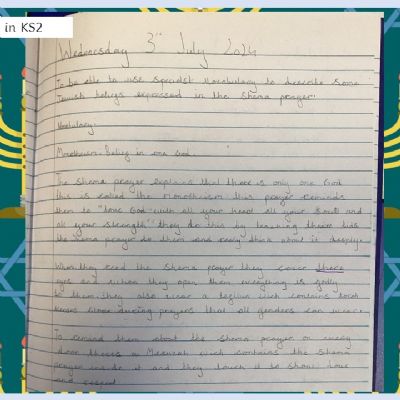 in KS2
Wednesday 3rd July 2024
To be able to use specialist vocabulary to describe some
Jewish beliefs expressed in the Shema prayer.
Vocabulary:
Monotheism: Belief in one God
The Shema prayer explains that there is only one God
this is called the Monotheism this prayer reminds
them to "love God with all your heart all your soul and
all your strength" they do this by teaching their kids
the Shema prayer to them and really think about it deeply.
When they read the Shema prayer they cover there
eyes and when they open them everything is godly
to them they also wear a tefilin wich contains
during prayers that all genders can wear.
To remind them about the Shema prayer on every
door theres a Mezuzah wich contains the Shema
prayer inside it and they touch it to show love
and respect